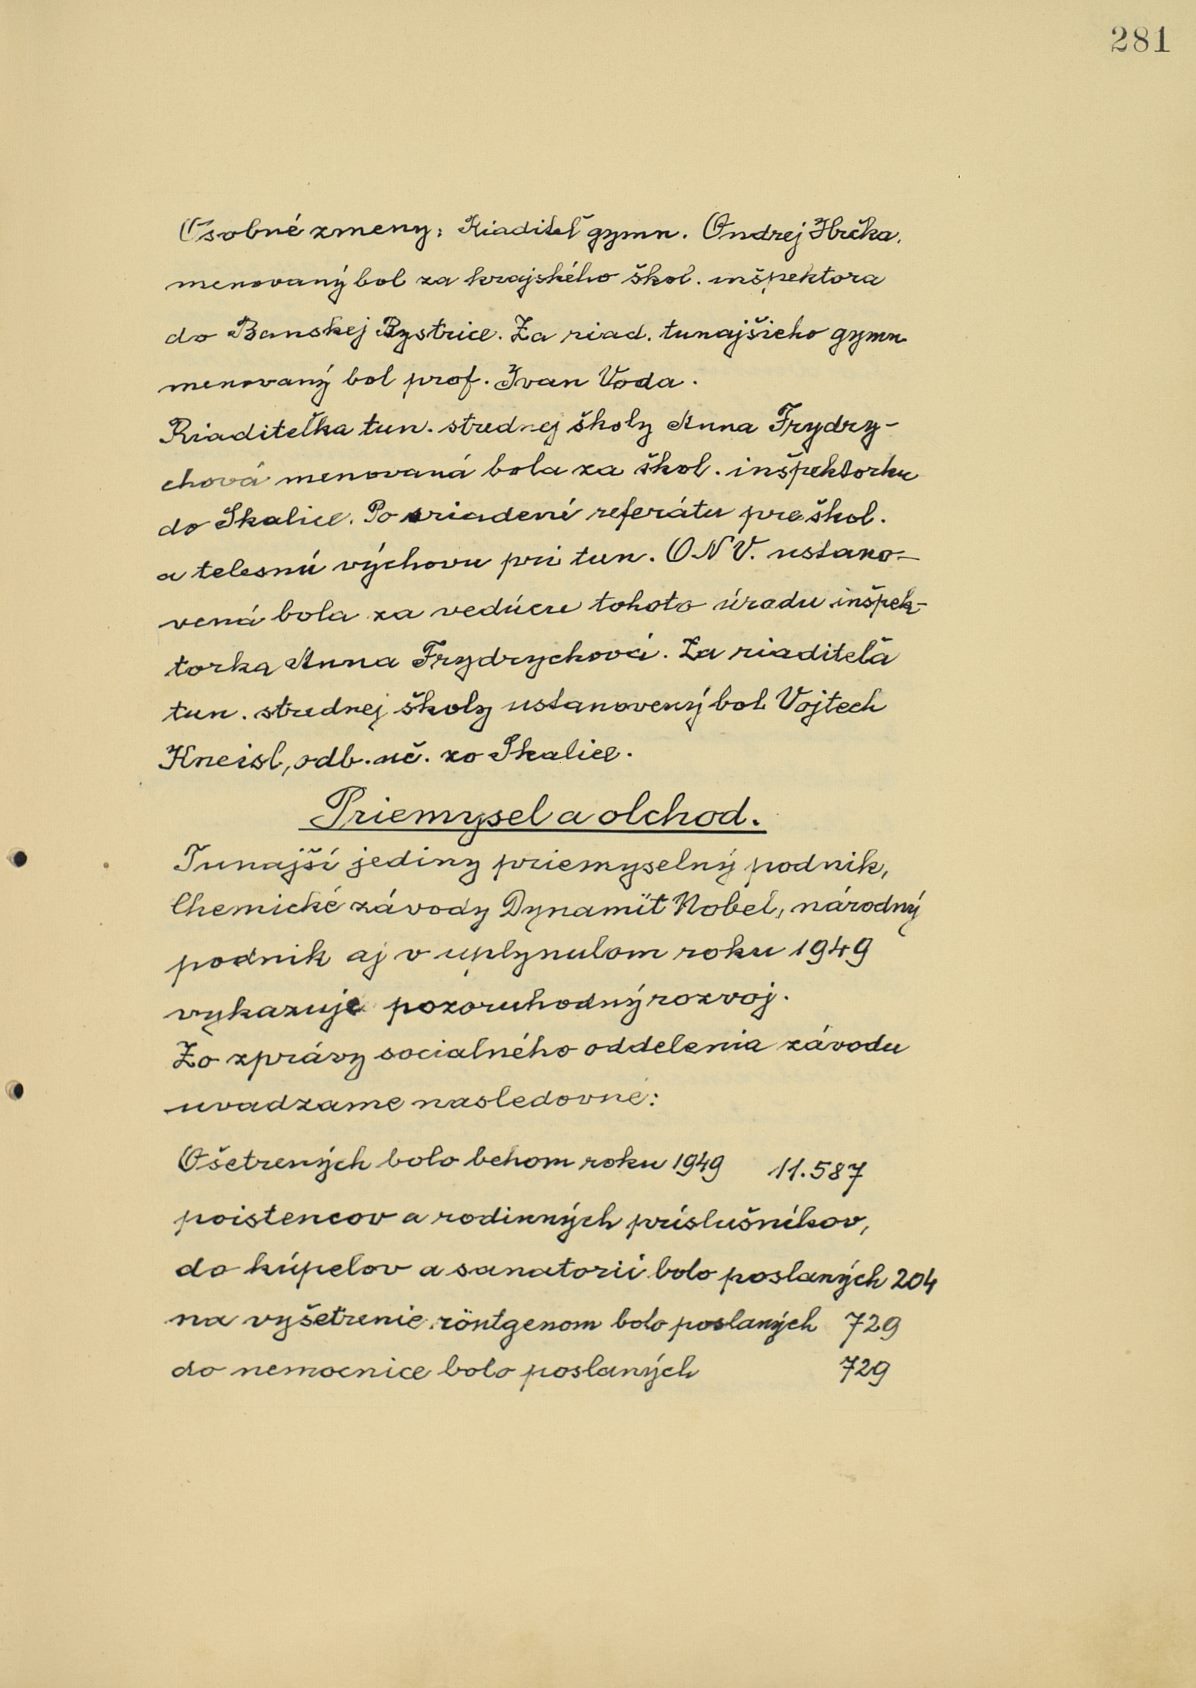 281
Osobné zmeny: Riaditeľ gymn. Ondrej Hrčka.
menovaný bol za krajského škol. inšpektora
do Banskej Bystrice. Za riad. tunajšieho gymn.
menovaný bol prof. Ivan Voda.
Riaditeľka tun. strednej školy Anna Frydry-
chová menovaná bola za škol. inšpektorku
do Skalice. Po sriadení referátu pre škol.
a telesnú výchovu pri tun. O.N.V. ustano-
vená bola za vedúcu tohoto úradu inšpek-
torka Anna Frydrychová. Za riaditeľa
tun. strednej školy ustanovený bol Vojtech
Kneisl, odb. uč. zo Skalice.
Priemysel a olchod.
Tunajší jediny priemyselný podnik,
Chemické závody Dynamit Nobel, národný
podnik aj v uplynulom roku 1949
vykazuje pozoruhodný rozvoj.
Zo zprávy socialného oddelenia závodu
uvadzame nasledovné:
Ošetrených bolo behom roku 1949 11.587
poistencov a rodinných príslušníkov,
do kúpelov a sanatorií bolo poslaných 204
na vyšetrenie röntgenom bolo poslaných 729
do nemocnice bolo poslaných 729